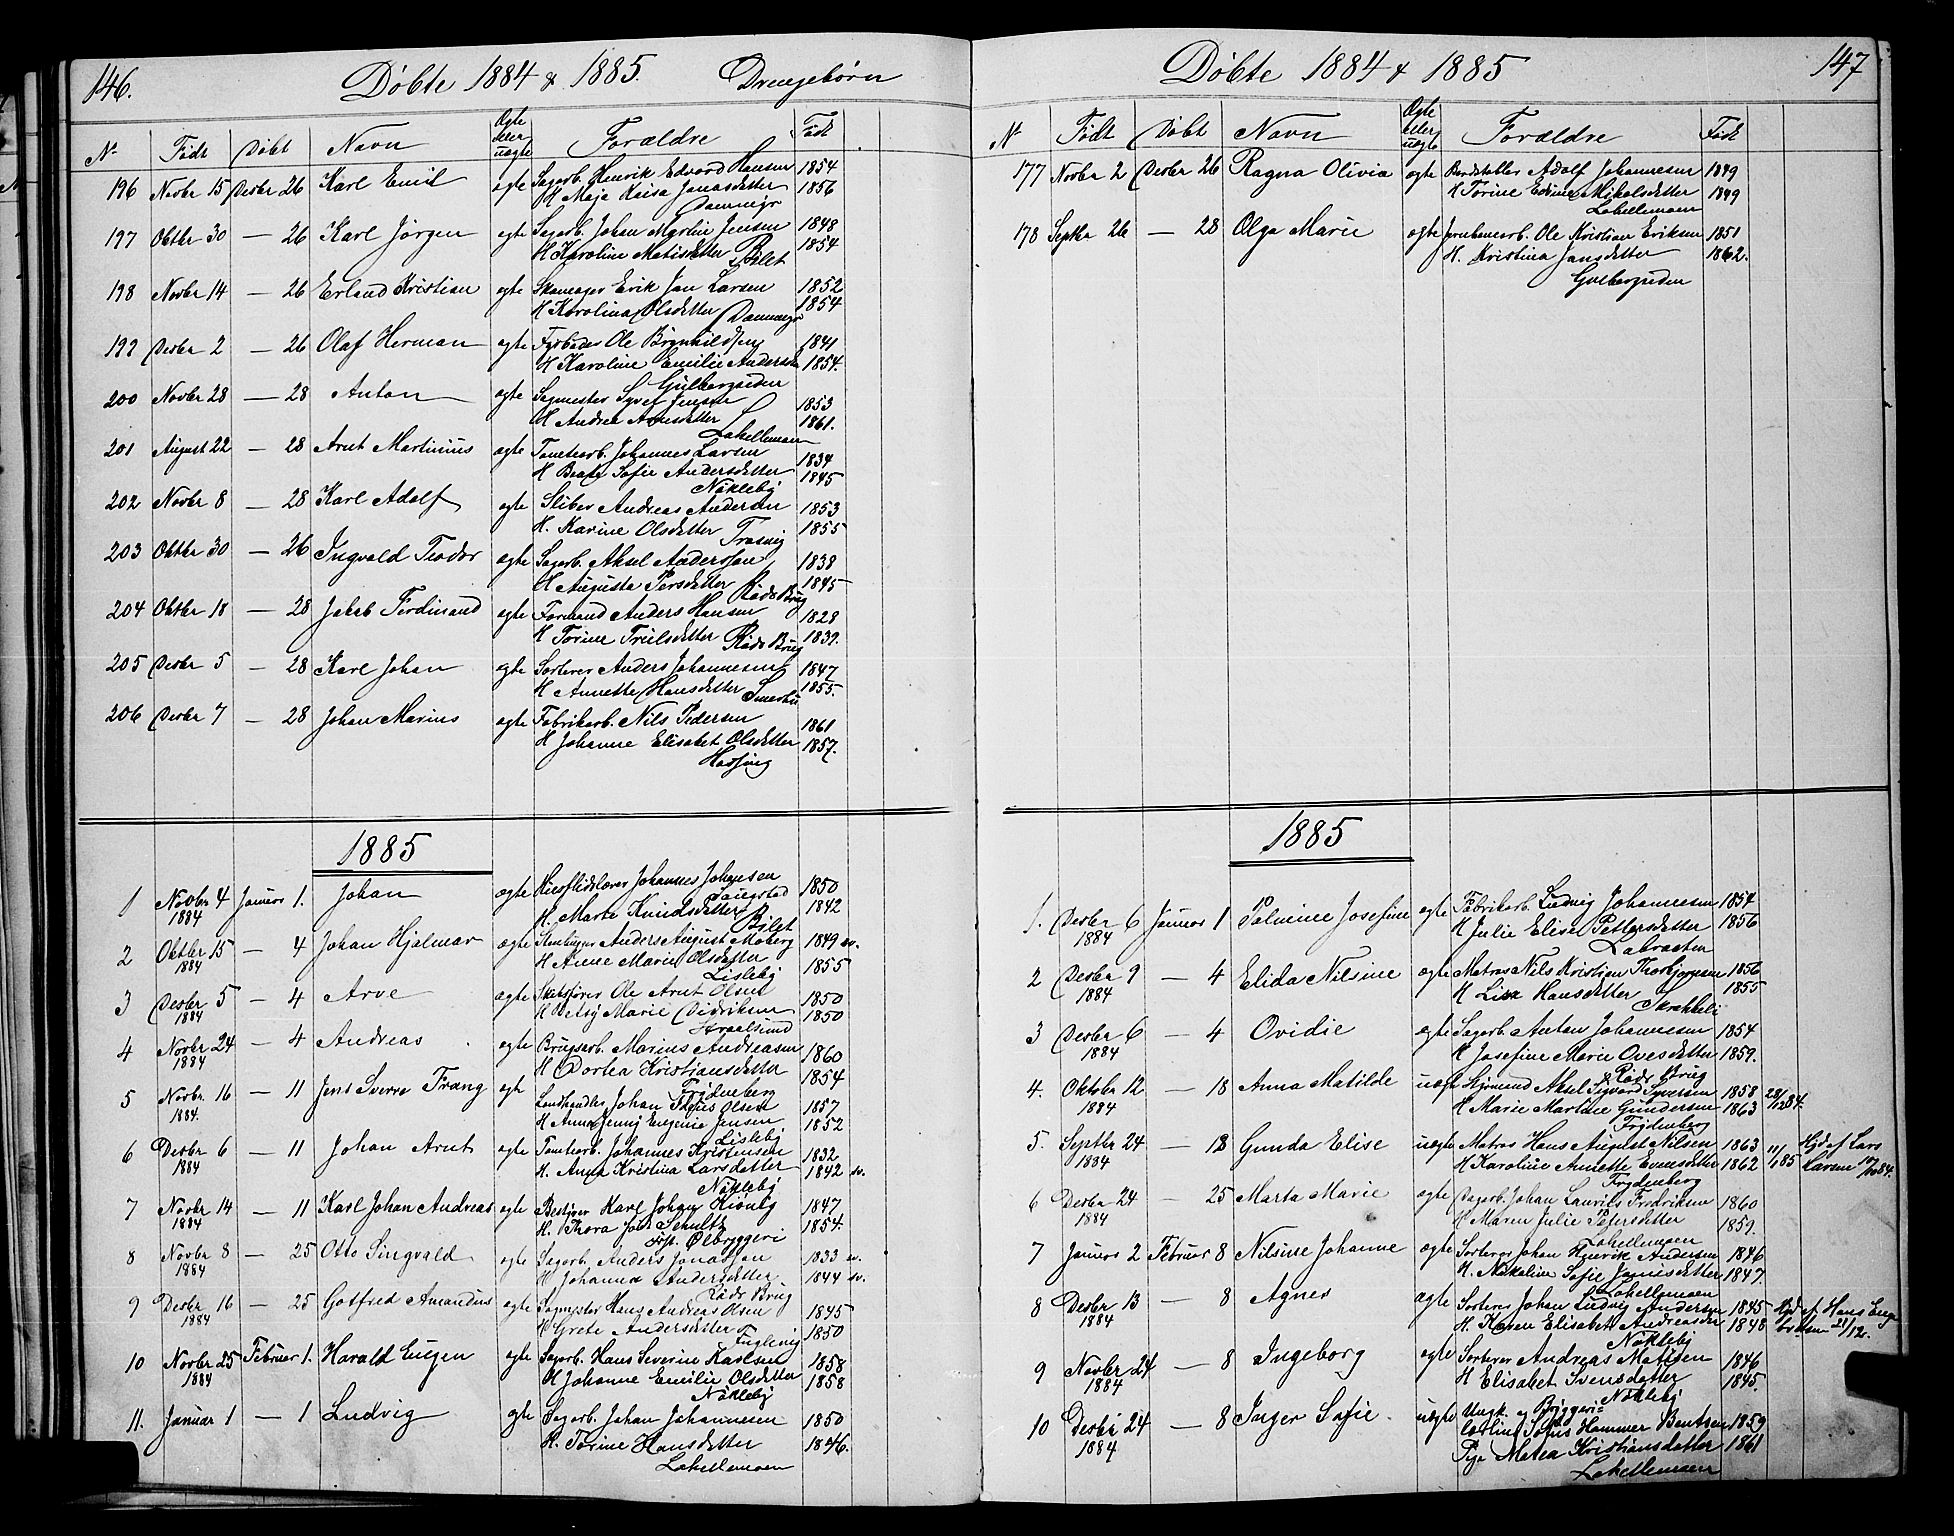 146.
Döbte 1884 & 1885. Drengebörn
No Födt Döbt Navn Ægte eller uægte Forældre Födt
196 Novbr 15 Desbr 26 Karl Emil ægte Sagarb. Henrik Edvard Hansen 1854
H Maja Kaisa Jonasdatter 1856
Dammegr
197 Oktbr 30 — 26 Karl Jörgen ægte Sagarb. Johan Martin Jensen 1848
H Karoline Matisdatter 1854
Bilet
198 Novbr 14 — 26 Erland Kristian ægte Skomager Erik Jan Larsen 1852
H Karolina Olsdatter 1854
Dammegr
199 Desbr 2 — 26 Olaf Herman ægte Fyrböder Ole Brynhildsen 1841
H Karoline Emilie Andersdtr 1854.
Gulbergsiden
200 Novbr 28 — 28 Anton ægte Sagmester Syver Jensen 1853
H Andrea Arnesdatter 1861.
Lahellemoen
201 August 22 — 28 Arnt Martinius ægte Tomtearb. Johannes Larsen 1834
H Beate Sofie Andersdatter 1845
Nöklebÿ
202 Novbr 8 — 28 Karl Adolf ægte Sliber Andreas Andersen 1853
H. Karine Olsdatter Trosvig 1855
203 Oktbr 30 — 26 Ingvald Teodor ægte Sagarb. Aksel Andersson 1838
H Augusta Persdatter 1845
Röds Brug
204 Oktbr 18 — 28 Jakob Ferdinand ægte Formand Anders Hansen 1828
H Torine Trulsdatter Röds Brug 1839.
205 Desbr 5 — 28 Karl Johan ægte Sorterer Anders Johannesen 1847
H Annette Hansdatter 1855.
206 Desbr 7 — 28 Johan Marius ægte Fabrikarb. Nils Pedersen 1861
H Johanne Elisabet Olsdatter 1857.
1885
1 Novbr 4 Januar 1. Johan ægte Johannes Johnsen 1850
1884
H. Marte Knudsdatter 1842
Bilet
2 Oktbr 15 — 4 Johan Hjalmar ægte Stenhugger Anders August Moberg 1849 sv.
1884
H Anne Marie Olsdatter 1855
Lislebÿ
3 Desbr 5 — 4 Arve ægte Skibsförer Ole Arnt Olsen 1850
1884
H Betsy Marie Didriksen 1850
4 Novbr 24 — 4 Andreas ægte Brugsarb. Marius Andreasen 1860
1884
H Dortea Kristiansdatter 1854
Frydenberg
5 Novbr. 16 — 11 Jens Sverre Trang ægte Landhandler Johan Olsen 1857
1884.
H Anna Jenny Eugenie Jensen 1852
Lislebÿ
6 Desbr 6 — 11 Johan Arnt ægte Tomtearb. Johannes Kristensen 1832
1884
H. Anna Kristina Larsdatter 1842 sv.
Nöklebÿ
7 Novbr 14 — 11 Karl Johan Andreas ægte Bestyrer Karl Johan Kiönig 1847
1884
H. Thora Schultz 1854
Ölbryggeri
8 Novbr 8 — 25 Otto Singvald ægte Sagarb. Anders Jonassen 1833 sv.
1884
H Johanna Andersdatter 1844 sv.
Röds Brug
9 Desbr 16 — 25 Gotfred Amandus ægte Sagmester Hans Andreas Olsen 1845
1884
H Grete Andersdatter 1850
Fuglevig
10 Novbr 25 Februar 1. Harald Eugen ægte Sagarb. Hans Severin Karlsen 1858
1884
H Johanne Emilie Olsdatter 1858
Nöklebÿ
11. Januar 1 — 1 Ludvig ægte Sagarb. Johan Johannesen 1850
H. Torine Hansdatter 1846.
Lahellemoen
147
Döbte 1884 & 1885
No Födt Döbt Navn Ægte eller uægte Forældre Födt
177 Novbr 2 Desbr 26 Ragna Olivia ægte Adolf Johannesen 1849
H Torine Edine Mikolsdatter 1849
Lahellemoen
178 Septbr 26 — 28 Olga Marie ægte Jernbanearb. Ole Kristian Eriksen 1851
H. Kristina Jansdatter 1862.
Gulbergsiden
1885
1. Desbr 6 Januar 1 Palmine Josefine ægte Fabrikarb. Ludvig Johannesen 1854
1884
H Julie Elise Pettersdatter 1856
Labraaten
2 Desbr 9 — 4 Elida Nilsine ægte Matros Nils Kristian Thorbjörnsen 1856
1884
H Lisa Hansdatter 1855
3 Desbr 6 — 4 Ovidie ægte Sagarb. Anton Johannesen 1854
1884
H Josefine Marie Ovesdatter 1859.
Röds Brug
4. Oktober 12 — 18 Anna Matilde uægt Styrmand Aksel Sigvard Syversen 1858 28/12 84.
1884
H Marie Martine Gundersen 1863
Frydenberg
5. Septbr 24 — 18 Gunda Elise uægte Matros Hans August Nilsen 1863 11/1 85 Hjd af Lars
1884
H Karoline Annette Evensdatter 1862 Larsen 84.
Frydenberg
6 Desbr 24 — 25 Marta Marie ægte Sagarb. Johan Laurits Fredriksen 1860
1884
H Maren Julie Petersdatter 1859.
Lahellemoen
7 Januar 2 Februar 8 Nilsine Johanne ægte Sorterer Johan Henrik Andersen 1846
H. Nikoline Sofie Jonisdatter 1847.
Lahellemoen
8 Desbr 13 — 8 Agnes ægte Sorterer Johan Ludvig Andersen 1845 Hjd af Hans Enge
1884
H. Karen Elisabet Andreasdtr 1848 bretsen 21/12.
Nöklebÿ
9 Novbr 24 — 8 Ingeborg ægte Sorterer Andreas Matisen 1846
1884
H Elisabet Svensdatter 1845.
Nöklebÿ
10 Desbr 24 — 8 Inger Sofie uægte Ungk. & Bryggeri=
1884
Hammer Bentsen 1859
Pige Matea Kristiansdatter 1861
Lahellemoen